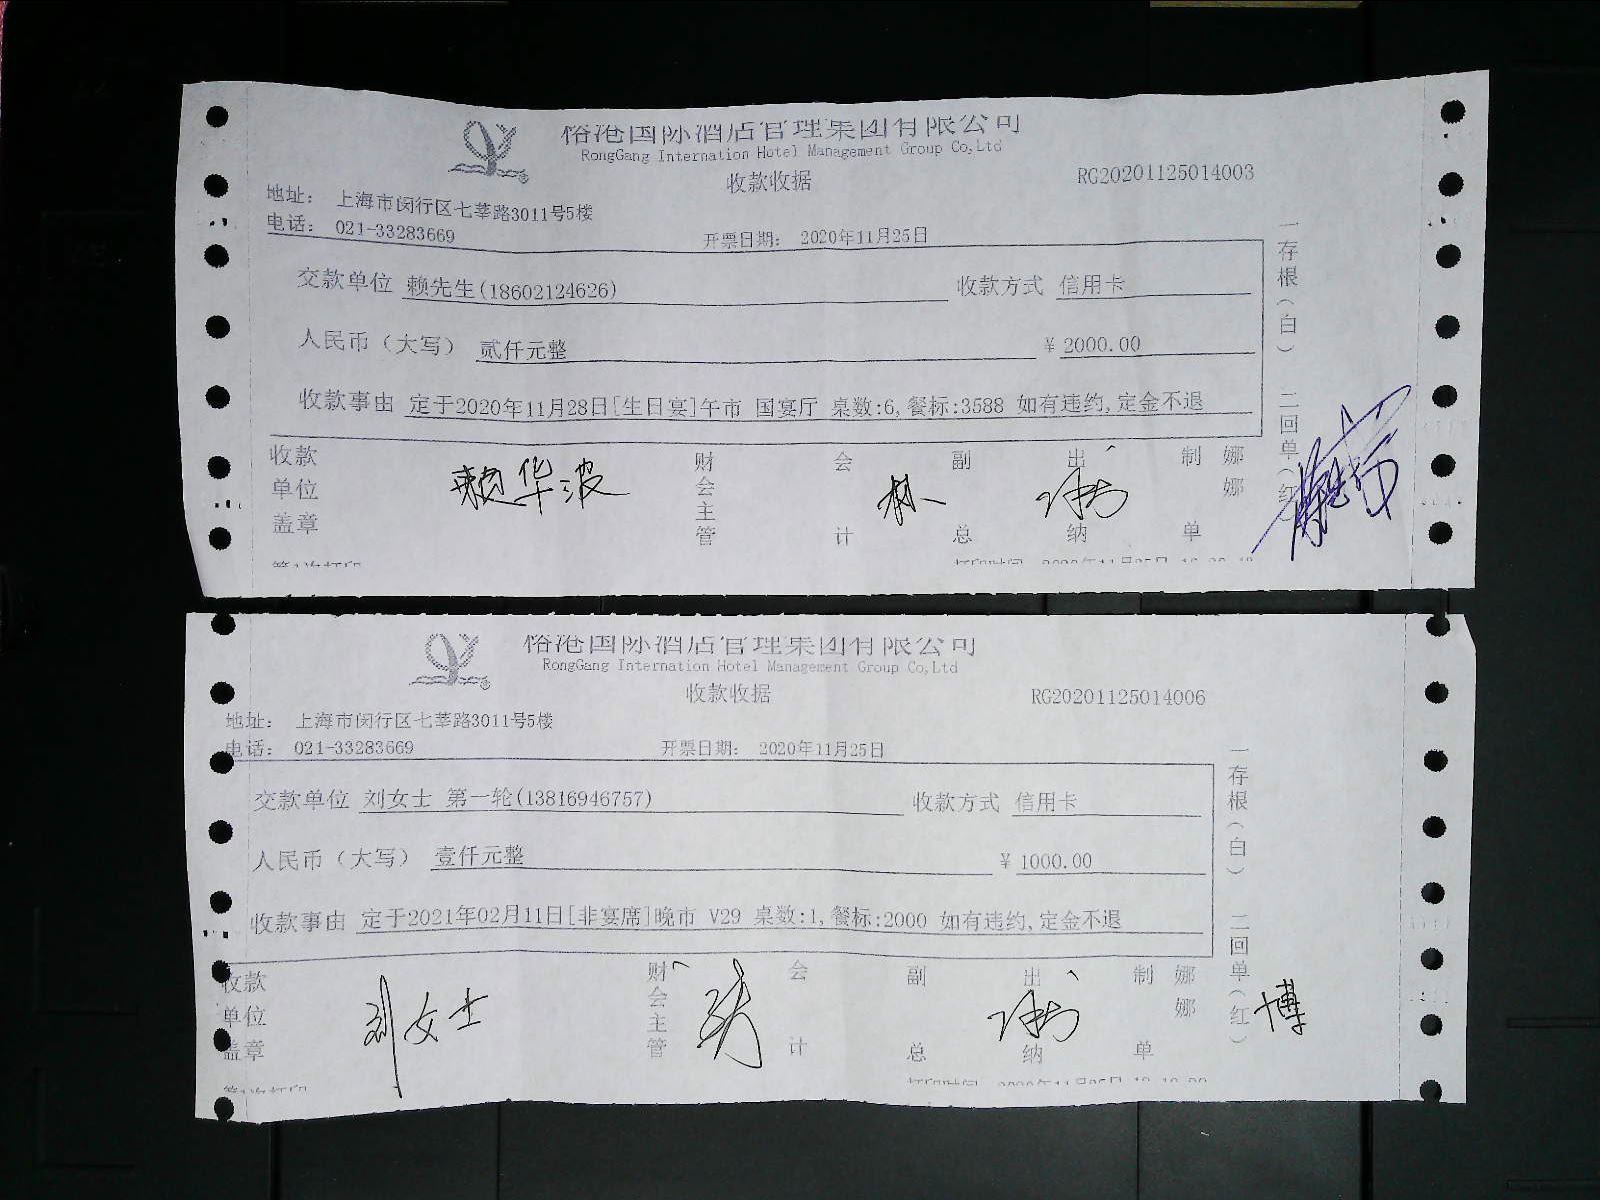 榕港国际酒店管理集团有限公司
RongGang Internation Hotel Management Group Co,Ltd
收款收据
RG20201125014003
地址： 上海市闵行区七莘路3011号5楼
电话： 021-33283669
开票日期： 2020年11月25日
交款单位 赖先生(18602124626) 收款方式 信用卡
人民币（大写） 贰仟元整 ¥ 2000.00
收款事由 定于2020年11月28日[生日宴]午市 国宴厅 桌数:6,餐标:3588 如有违约,定金不退
一存根（白） 二回单（红）
收款单位盖章 赖华波 财会主管 会计 林 副总 出纳 制单 娜娜
第1次打印 打印时间 2020年11月25日
榕港国际酒店管理集团有限公司
RongGang Internation Hotel Management Group Co,Ltd
收款收据
RG20201125014006
地址： 上海市闵行区七莘路3011号5楼
电话： 021-33283669
开票日期： 2020年11月25日
交款单位 刘女士 第一轮(13816946757) 收款方式 信用卡
人民币（大写） 壹仟元整 ¥ 1000.00
收款事由 定于2021年02月11日[非宴席]晚市 V29 桌数:1,餐标:2000 如有违约,定金不退
一存根（白） 二回单（红）
收款单位盖章 刘女士 财会主管 会计 副总 出纳 制单 娜娜 博
第1次打印 打印时间 2020年11月25日